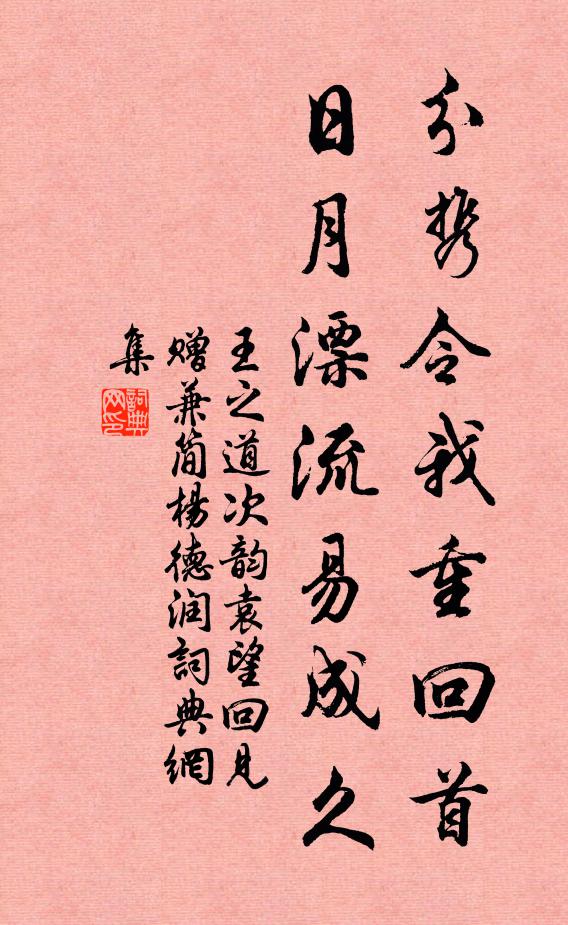 分携令我重回首
日月漂流易成久
王之道次韵袁望回见
赠兼简杨德润詞典網
集
詞典網印